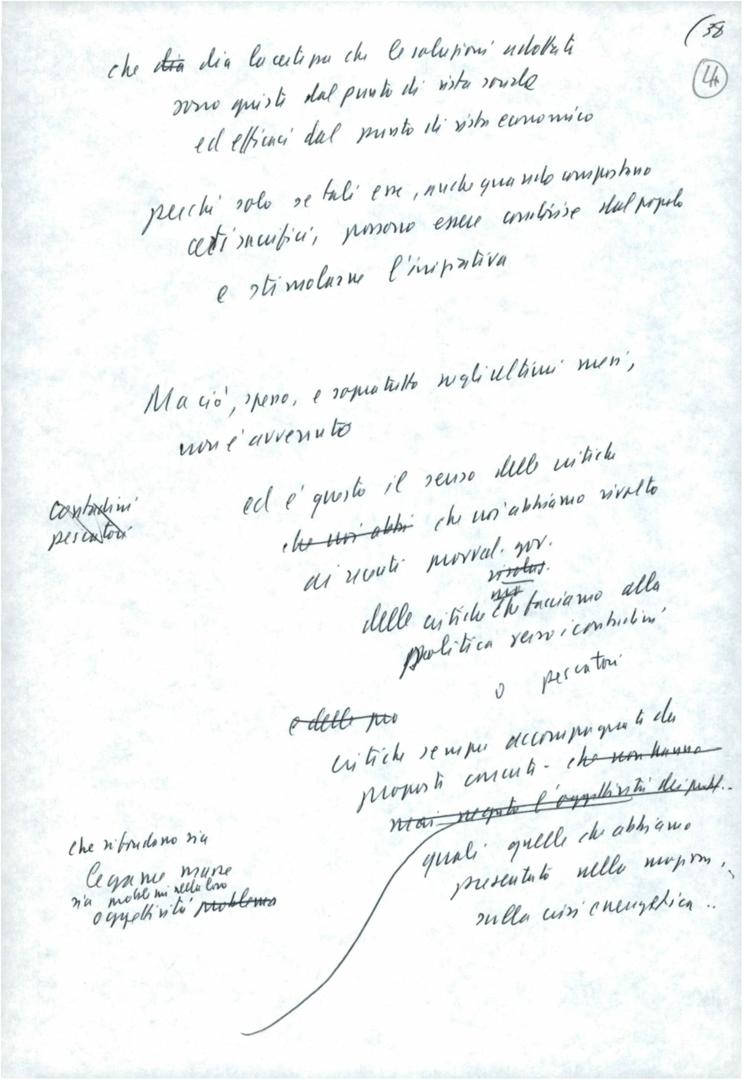 (38
4
che dia dia la certezza che le soluzioni adottate
sono giuste dal punto di vista sociale
ed efficaci dal punto di vista economico
perché solo se tali esse, anche quando comportano
certi sacrifici, possono essere condivise dal popolo
e stimolarne l'iniziativa
Ma ciò, spesso, e sopratutto negli ultimi mesi,
non è avvenuto
ed è questo il senso delle critiche
che noi abbi che noi abbiamo rivolto
ai recenti provved. gov.
delle critiche che facciamo alla
politica verso i contadini
o pescatori
contadini
pescatori
e delle pro
critiche sempre accompagnate da
proposte concrete - che non hanno
mai negato l'oggettività dei probl..
quali quelle che abbiamo
presentato nella mozione
sulla crisi energetica ..
che rifondono sia
legame masse
sia problemi nella loro
oggettività problema